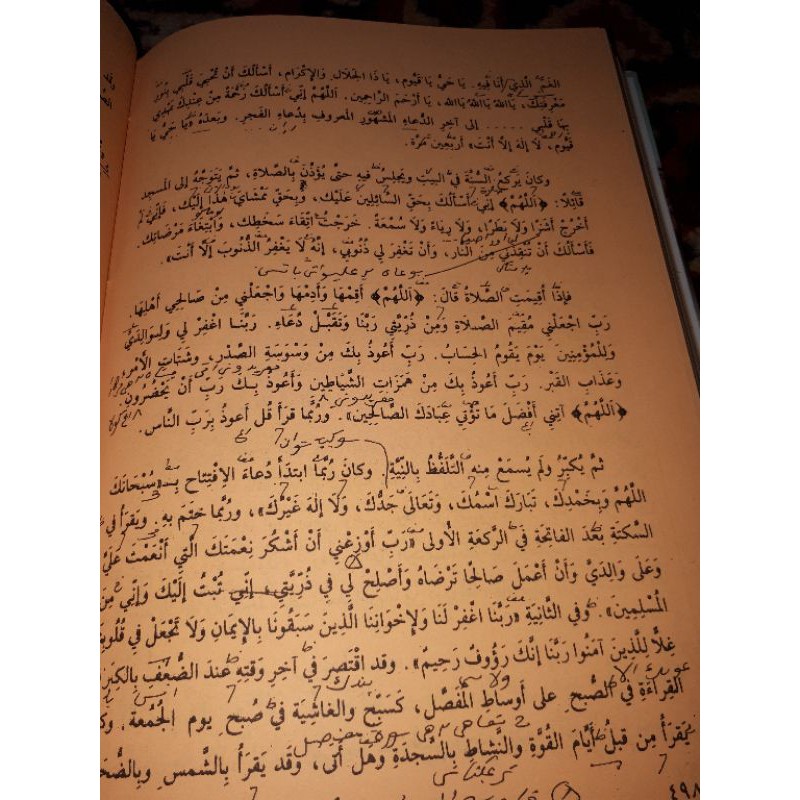 الغَمّ الَّذِي أنَا فِيهِ. يَا حَيُّ يَا قَيُّوم، يَا ذَا الجَلَال وَالإكْرَام، أسْألُكَ أنْ تُحْيِيَ قَلْبِي بِنُورِ
مَعْرِفَتِكَ، يَا اللهُ يَا اللهُ يَا الله، يَا أرْحَمَ الرَّاحِمِين. اَللّهُمَّ إنِّي أسْألُكَ رَحْمَةً مِنْ عِنْدِكَ تَهْدِي
بِهَا قَلْبِي ..... إلى آخِرِ الدُّعاءِ المَشْهُورِ المَعْرُوفِ بِدُعاءِ الفَجْرِ. وبَعدَهُ «يَا حَيُّ يَا
قَيُّوم، لَا إلهَ إلَّا أنْتَ» أرْبَعِينَ مَرَّة.
وكانَ يَركَعُ السُّنَّةَ في البَيْتِ ويَجلِسُ فيهِ حتى يُؤَذَّنَ بِالصَّلاةِ، ثمَّ يَتَوَجَّهُ إلى المسجدِ
قَائِلًا: «اَللّهُمَّ» إنِّي أسْألُكَ بِحَقِّ السَّائِلِينَ عَلَيْك، وَبِحَقِّ مَمْشَايَ هٰذَا إلَيْك، فَإنِّي لَمْ
أخْرُجْ أشَرًا وَلَا بَطَرًا، وَلَا رِيَاءً وَلَا سُمْعَةً. خَرَجْتُ اتِّقَاءَ سَخَطِك، وَابْتِغَاءَ مَرْضَاتِك.
فَأسْألُكَ أنْ تُنْقِذَنِي مِنَ النَّار، وَأنْ تَغْفِرَ لِي ذُنُوبِي، إنَّهُ لَا يَغْفِرُ الذُّنُوبَ إلَّا أنْتَ».
فإذا أُقِيمَتِ الصَّلاةُ قالَ: «اَللّهُمَّ» أقِمْهَا وَأدِمْهَا وَاجْعَلْنِي مِنْ صَالِحِي أهْلِهَا.
رَبِّ اجْعَلْنِي مُقِيمَ الصَّلَاةِ وَمِنْ ذُرِّيَّتِي رَبَّنَا وَتَقَبَّلْ دُعَاءِ. رَبَّنَا اغْفِرْ لِي وَلِوَالِدَيَّ
وَلِلْمُؤْمِنِينَ يَوْمَ يَقُومُ الحِسَابُ. رَبِّ أعُوذُ بِكَ مِنْ وَسْوَسَةِ الصَّدْر، وَشَتَاتِ الأمْر،
وَعَذَابِ القَبْر. رَبِّ أعُوذُ بِكَ مِنْ هَمَزَاتِ الشَّيَاطِينِ وَأعُوذُ بِكَ رَبِّ أنْ يَحْضُرُونِ.
«اَللّهُمَّ» آتِنِي أفْضَلَ مَا تُؤْتِي عِبَادَكَ الصَّالِحِين». ورُبَّما قرَأَ قُل أعوذُ بِرَبِّ النَّاس.
ثمَّ يُكَبِّرُ ولَم يُسمَعْ مِنهِ التَّلَفُّظُ بِالنِّيَّةِ. وكانَ رُبَّما ابتَدَأ دُعاءَ الاِفْتِتَاح بِـ«سُبْحَانَكَ
اللّهُمَّ وَبِحَمْدِكَ، تَبَارَكَ اسْمُكَ، وَتَعَالَى جَدُّكَ، وَلَا إلهَ غَيْرُكَ»، ورُبَّما ختَمَ به. ويَقرَأ في
السَّكتَةِ بَعْدَ الفاتِحَةِ في الرَّكعَةِ الأولى «رَبِّ أوْزِعْنِي أنْ أشْكُرَ نِعْمَتَكَ الَّتِي أنْعَمْتَ عَلَيَّ
وَعَلَى وَالِدَيَّ وَأنْ أعْمَلَ صَالِحًا تَرْضَاهُ وَأصْلِحْ لِي فِي ذُرِّيَّتِي إنِّي تُبْتُ إلَيْكَ وَإنِّي مِنَ
المُسْلِمِينَ». وفي الثَّانِيَةِ «رَبَّنَا اغْفِرْ لَنَا وَلِإخْوَانِنَا الَّذِينَ سَبَقُونَا بِالإيمَانِ وَلَا تَجْعَلْ فِي قُلُوبِنَا
غِلًّا لِلَّذِينَ آمَنُوا رَبَّنَا إنَّكَ رَؤُوفٌ رَحِيمٌ». وقد اقْتَصَرَ في آخِرِ وَقتِهِ عندَ الضَّعْفِ بِالكِبَرِ
القِرَاءَةِ في الصُّبحِ على أوساطِ المُفَصَّل، كَسَبِّحْ والغاشِيَة في صُبحِ يومِ الجُمُعة. وكان
يَقرَأُ مِن قبلُ أيَّامَ القُوَّةِ والنَّشاطِ بِالسَّجدَةِ وهَل أتى، وقَد يَقرَأُ بِالشَّمسِ وبِالضُّحَى
٤٩٨